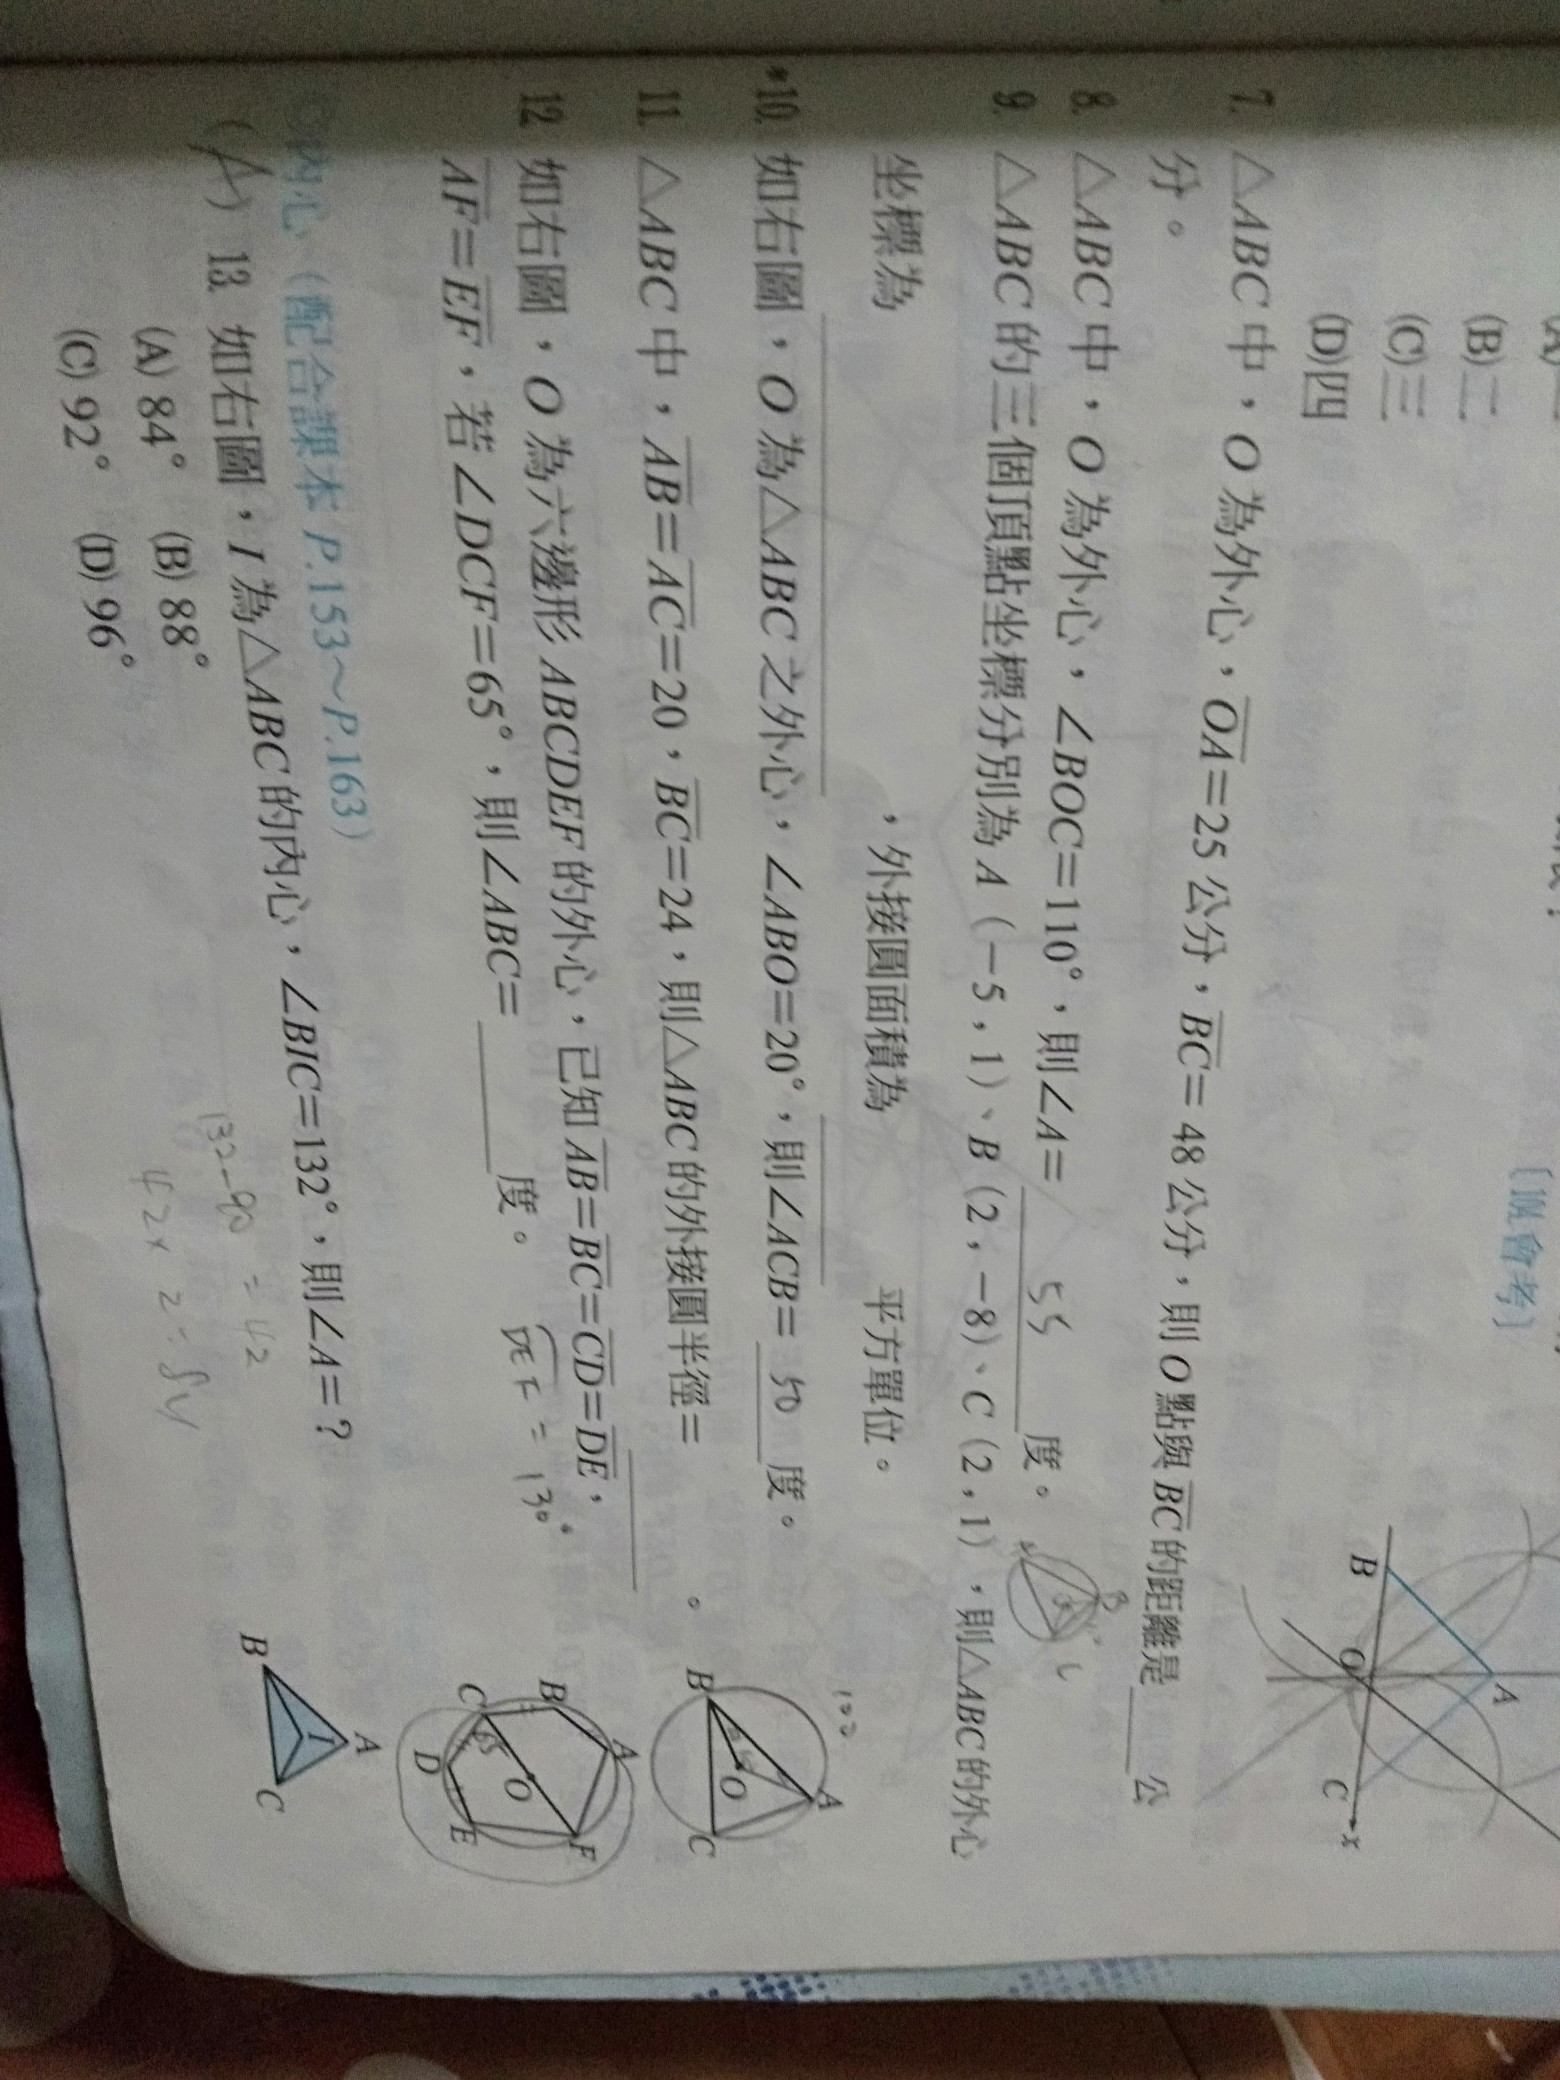 (B)二
(C)三
(D)四
〔101會考〕
A
B
O
C
x
7. △ABC 中，O 為外心，OA=25 公分，BC=48 公分，則 O 點與 BC 的距離是____公
分。
8. △ABC 中，O 為外心，∠BOC=110°，則∠A=55度。
9. △ABC 的三個頂點坐標分別為 A（-5，1）、B（2，-8）、C（2，1），則△ABC 的外心
坐標為____，外接圓面積為____平方單位。
*10. 如右圖，O 為△ABC 之外心，∠ABO=20°，則∠ACB=50度。
100
B
O
A
C
11. △ABC 中，AB=AC=20，BC=24，則△ABC 的外接圓半徑=____。
12. 如右圖，O 為六邊形 ABCDEF 的外心，已知 AB=BC=CD=DE，
AF=EF，若∠DCF=65°，則∠ABC=____度。
DEF=130°
A
B
C
65
O
D
E
F
內心（配合課本 P.153～P.163）
(A) 13. 如右圖，I 為△ABC 的內心，∠BIC=132°，則∠A=？
(A) 84° (B) 88°
(C) 92° (D) 96°
132-90=42
42×2=84
A
I
B
C